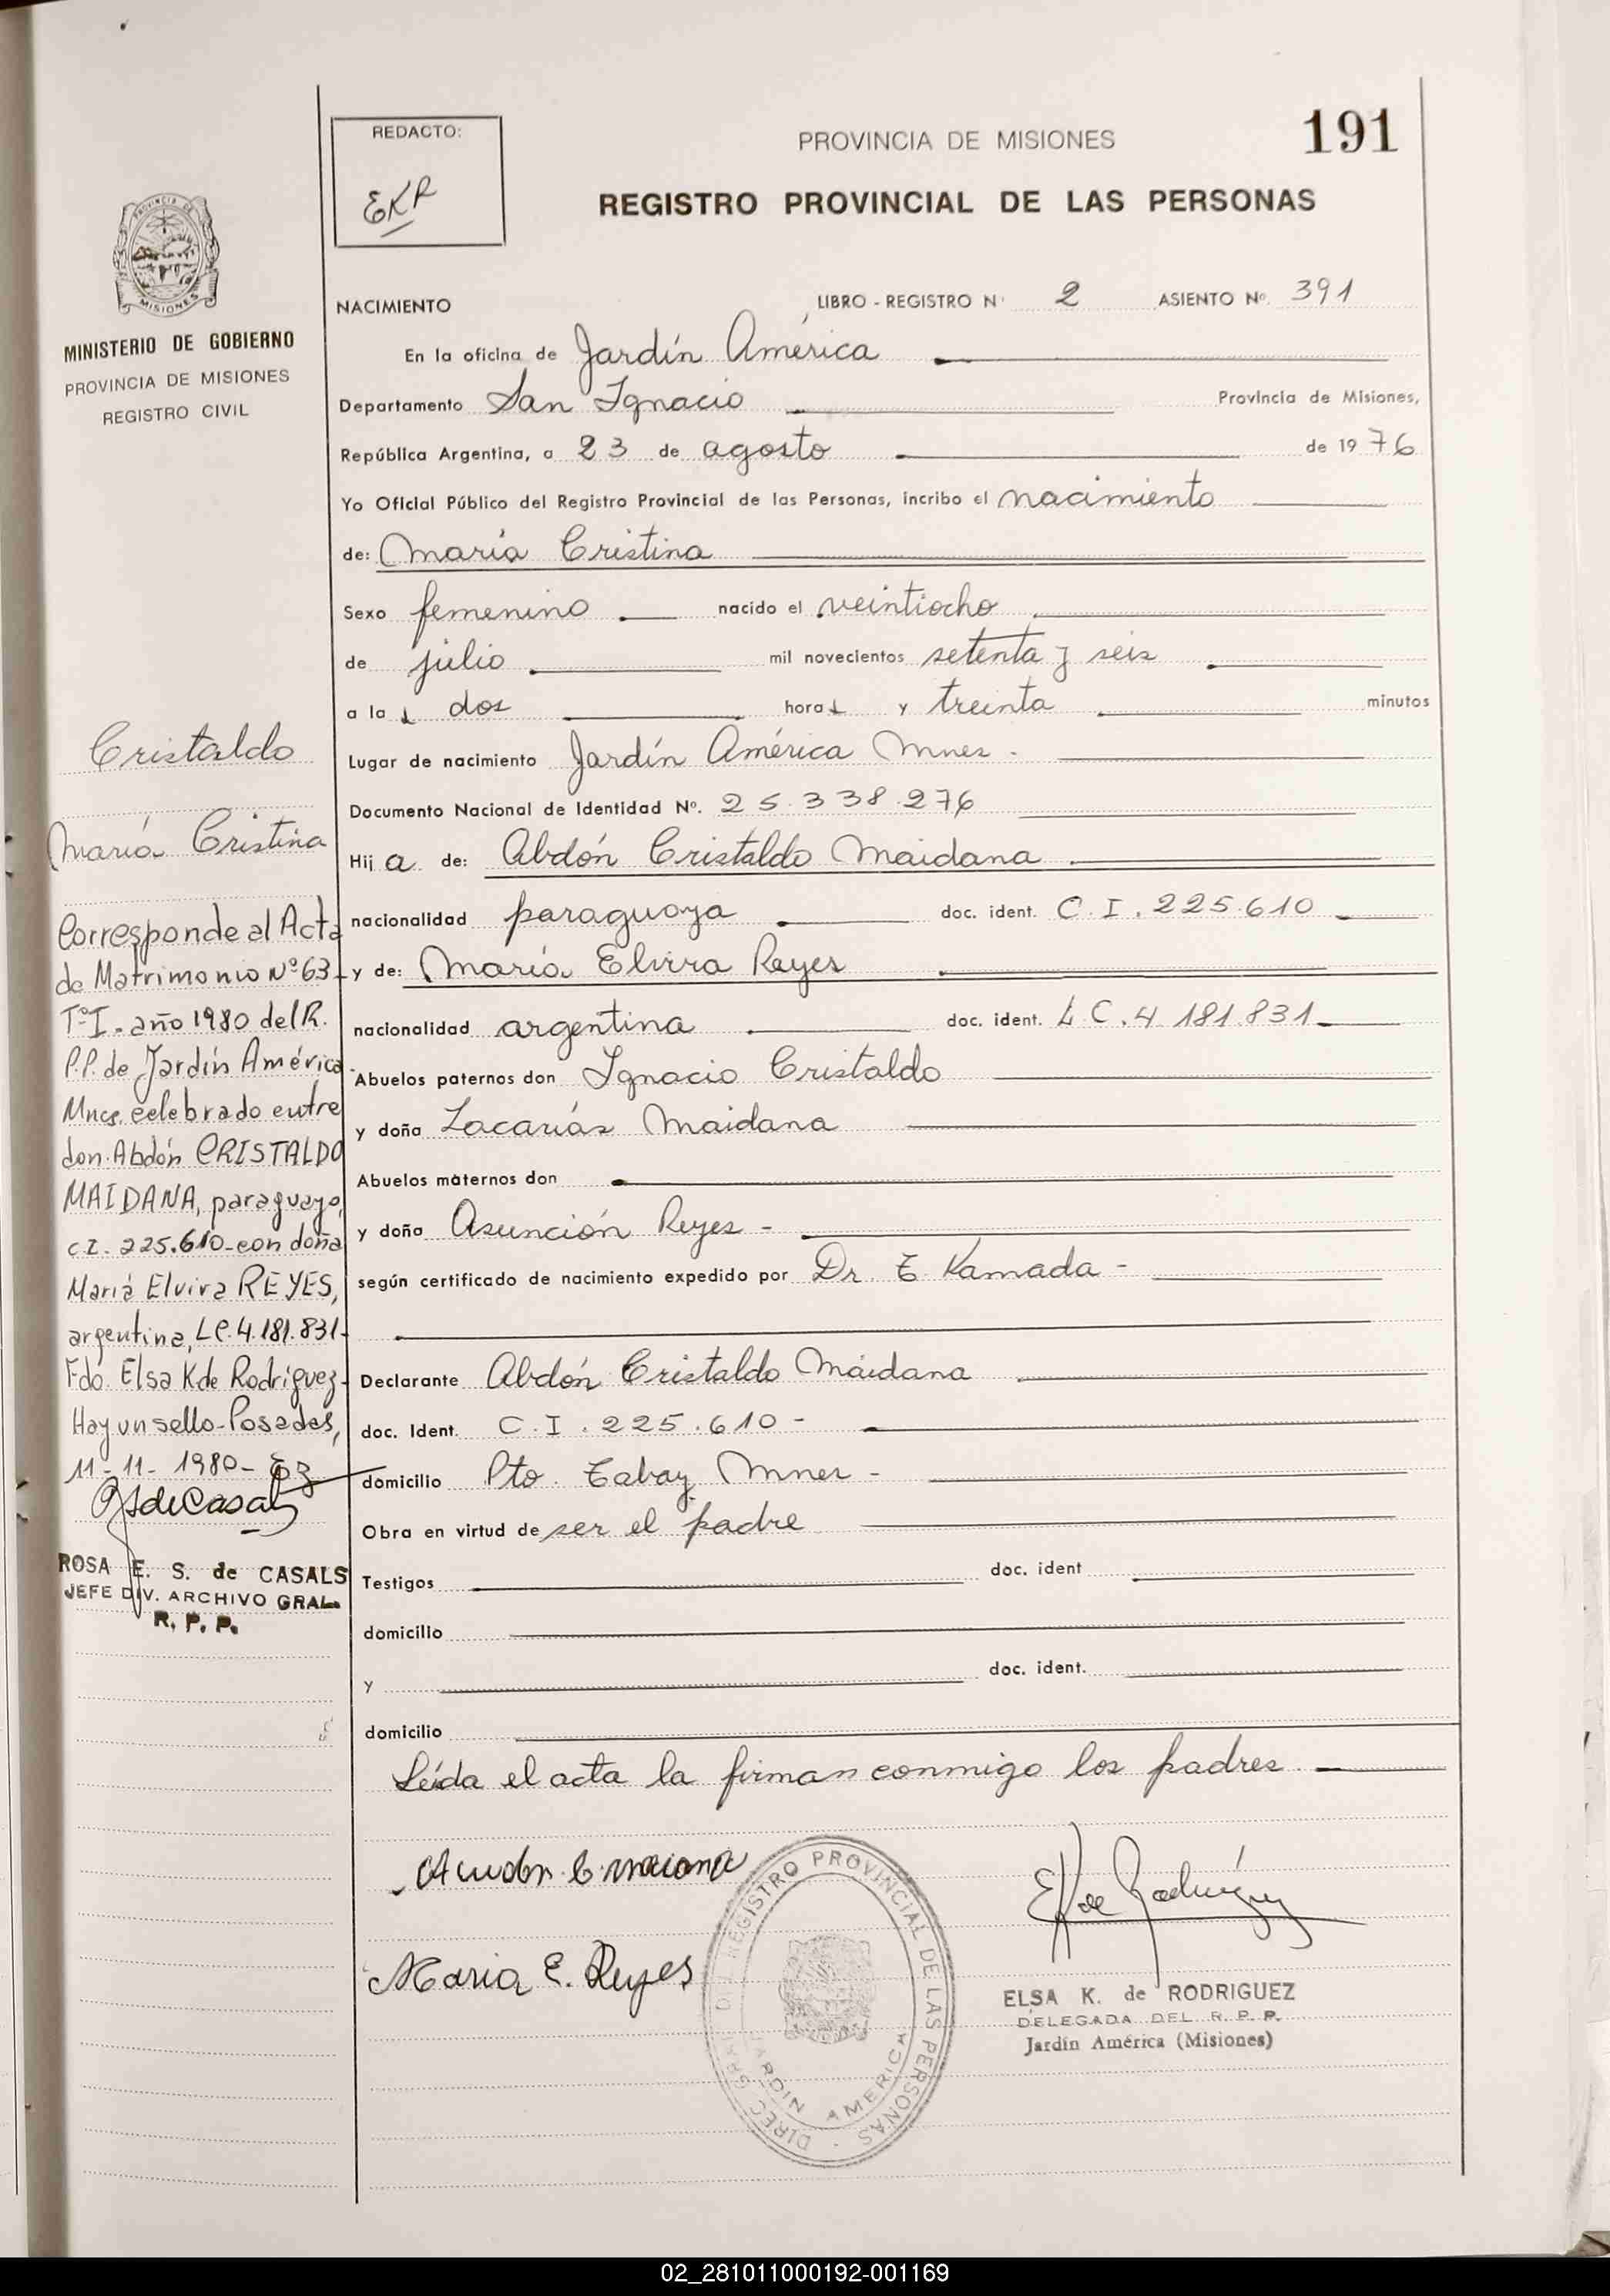 191
REDACTO:
EKR
PROVINCIA DE MISIONES
REGISTRO PROVINCIAL DE LAS PERSONAS
PROVINCIA DE
MISIONES
MINISTERIO DE GOBIERNO
PROVINCIA DE MISIONES
REGISTRO CIVIL
NACIMIENTO LIBRO - REGISTRO N° 2 ASIENTO Nº. 391
En la oficina de Jardín América
Departamento San Ignacio Provincia de Misiones,
República Argentina, a 23 de agosto de 1976
Yo Oficial Público del Registro Provincial de las Personas, incribo el nacimiento
de: María Cristina
Sexo femenino nacido el veintiocho
de julio mil novecientos setenta y seis
a las dos horas y treinta minutos
Lugar de nacimiento Jardín América Mnes -
Documento Nacional de Identidad Nº. 25.338.276
Hija de: Abdón Cristaldo Maidana
nacionalidad paraguaya doc. ident. C.I. 225.610
y de: María Elvira Reyes
nacionalidad argentina doc. ident. L C. 4 181.831
Abuelos paternos don Ignacio Cristaldo
y doña Zacarías Maidana
Abuelos maternos don
y doña Asunción Reyes -
según certificado de nacimiento expedido por Dr. E Kamada -
Declarante Abdón Cristaldo Maidana
doc. Ident. C.I. 225.610 -
domicilio Pto. Tabay Mnes -
Obra en virtud de ser el padre
Testigos doc. ident
domicilio
y doc. ident.
domicilio
Leída el acta la firman conmigo los padres
Cristaldo
María Cristina
Corresponde al Acta
de Matrimonio Nº 63-
Tº I - año 1980 del R.
P.P. de Jardín América
Mnes. celebrado entre
don Abdón CRISTALDO
MAIDANA, paraguayo,
C.I. 225.610 - con doña
María Elvira REYES,
argentina, LC. 4.181.831-
Fdo. Elsa K de Rodríguez-
Hay un sello - Posadas,
11-11-1980-
ROSA E. S. de CASALS
JEFE DIV. ARCHIVO GRAL.
R. P. P.
Maria E. Reyes
EK de Rodríguez
DIREC. GRAL. DEL REGISTRO PROVINCIAL DE LAS PERSONAS
JARDIN AMERICA
ELSA K. de RODRIGUEZ
DELEGADA DEL R. P. P.
Jardín América (Misiones)
02_281011000192-001169